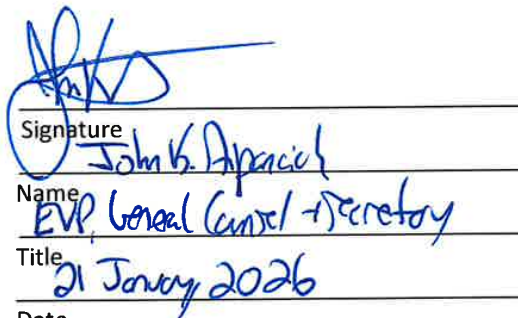 Signature
John K.
Name
EVP, General Counsel + Secretary
Title
21 January 2026
Date